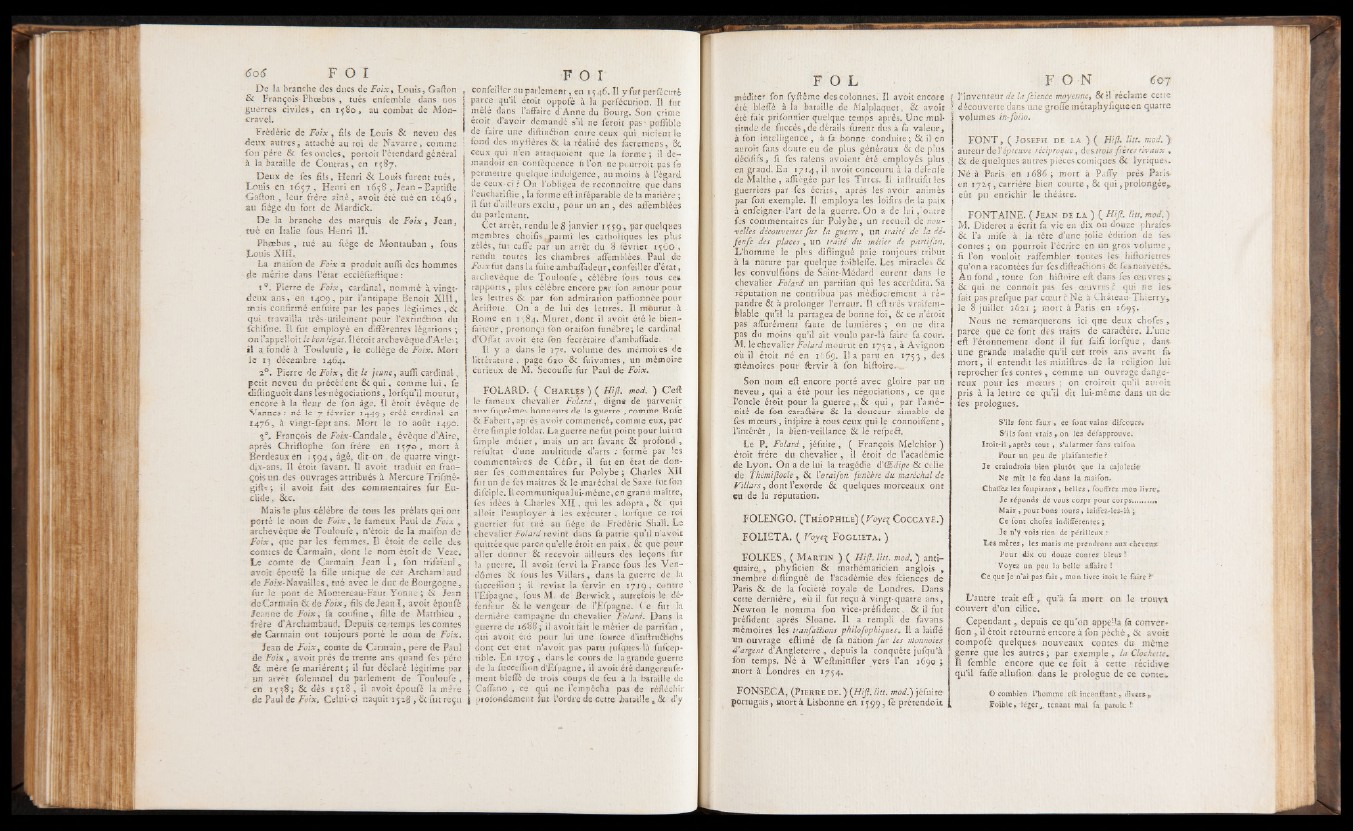 606 F O I
De la branche des ducs de Foix, Louis, Gaston
& François-Phœbus, tués ensemble dans nos
guerres civiles, en 1580, au combat de Mon-
cravel.
Fréderic de Foix, fils de Louis & neveu des
deux autres, attaché au roi de Navarre, comme
son père & ses oncles, portoit l'étendard général
à la bataille de Coutras, en 1587.
Deux de ses fils, Henri & Louis furent tués,
Louis en 1657, Henri en 1658, Jean-Baptiste
Gaston, leur frère aîné, avoit été tué en 1646,
au siège du fort de Mardick.
De la branche des marquis de Foix, Jean,
tué en Italie sous Henri II.
Phœbus, tué au siège de Montauban, sous
Louis XIII.
La maison de Foix a produit aussi des hommes
de mérite dans l'état ecclésiastique:
1°. Pierre de Foix, cardinal, nommé à vingt-
deux ans, en 1409, par l'antipape Benoit XIII,
mais confirmé ensuite par les papes légitimes, &
qui travailla très-utilement pour l'extinction du
schisme. Il fut employé en différentes légations;
on l'appelloit le bon légat. Il étoit archevêque d'Arle;
il a fondé à Toulouse, le collège de Foix. Mort
le 13 décembre 1464.
2°. Pierre de Foix, dit le jeune, aussi cardinal,
petit neveu du précédent & qui, comme lui, se
distinguoit dans les négociations, lorsqu'il mourut,
encore à la fleur de son âge. Il étoit évêque de
Vannes: né le 7 février 1449, créé cardinal en
1476, à vingt-sept ans. Mort le 10 août 1490.
3°. François de Foix-Candale, évêque d'Aire,
après Christophe son frère en 1570, mort à
Bordeaux en 1594, âgé, dit-on, de quatre vingt-
dix-ans. Il étoit savant. Il avoit traduit en fran-
çois un des ouvrages attribués à Mercure Trismé-
giste; il avoit fait des commentaires sur Eu-
clide, &c.
Mais le plus célèbre de tous les prélats qui ont
porté le nom de Foix, le fameux Paul de Foix,
archevêque de Toulouse, n'étoit de la maison de
Foix, que par les femmes. Il étoit de celle des
comtes de Carmain, dont le nom étoit de Veze.
Le comte de Carmain Jean I, son trisaïeul,
avoit épousé la fille unique de cet Archambaud
de Foix-Navailles, tué avec le duc de Bourgogne,
sur le pont de Montereau-Faut Yonne; & Jean
de Carmain & de Foix, fils de Jean I, avoit épousé
Jeanne de Foix, sa cousine, fille de Matthieu,
frère d'Archambaud. Depuis ce temps les comtes
de Carmain ont toujours porté le nom de Foix.
Jean de Foix, comte de Carmain, pere de Paul
de Foix, avoit près de trente ans quand ses père
& mère se marièrent; il fut déclaré légitime par
un arrêt solemnel du parlement de Toulouse,
en 1538; & dès 1518, il avoit épousé la mère
de Paul de Foix. Celui-ci naquit 1528, & fut reçu
F O I
conseiller au parlement, en 1546. Il y fut persécuté
parce qu'il étoit opposé à la persécution. Il fut
mêlé dans l'affaire d'Anne du Bourg. Son crime
étoit d'avoir demandé s'il ne seroit pas possible
de faire une distinction entre ceux qui nioient le
fond des mystères & la réalité des sacremens, &
ceux qui n'en attaquoient que la forme; il de-
mandoit en conséquence si l'on ne pourroit pas se
permettre quelque indulgence, au moins à l'égard
de ceux-ci? On l'obligea de reconnoître que dans
l'eucharistie, la forme est inséparable de la matière;
il fut d'ailleurs exclu, pour un an, des assemblées
du parlement.
Cet arrêt, rendu le 8 janvier 1559, par quelques
membres choisis, parmi les catholiques les plus
zélés, fut cassé par un arrêt du 8 février 1560,
rendu toutes les chambres assemblées. Paul de
Foix fut dans la suite ambassadeur, conseiller d'état,
archevêque de Toulouse, célèbre sous tous ces
rapports, plus célèbre encore par son amour pour
les lettres & par son admiration passionnée pour
Aristote. On a de lui des lettres. Il mourut à
Rome en 1584. Muret, dont il avoit été le bien-
faiteur, prononça son oraison funèbre; le cardinal
d'Ossat avoit été son secrétaire d'ambassade.
Il y a dans le 17e. volume des mémoires de
littérature, page 620 & suivantes, un mémoire
curieux de M. Secousse sur Paul de Foix.
FOLARD. ( CHARLES ) ( Hist. mod. ) C'est
le fameux chevalier Folard, digne de parvenir
aux suprêmes honneurs de la guerre, comme Rose
& Fabert, après avoir commencé, comme eux, par
être simple soldat. La guerre ne fut point pour lui un
simple métier, mais un art savant & profond,
résultat d'une multitude d'arts; formé par les
commentaires de César, il fut en état de don-
ner ses commentaires sur Polybe; Charles XII
fut un de ses maîtres & le maréchal de Saxe fut son
disciple. Il communiqua lui-même, en grand maître,
ses idées à Charles XII, qui les adopta, & qui
alloit l'employer à les exécuter, lorsque ce roi
guerrier fut tué au siège de Frédéric Shall. Le
chevalier Folard revint dans sa patrie qu'il n'avoit
quittée que parce qu'elle étoit en paix, & que pour
aller donner & recevoir ailleurs des leçons sur
la guerre. Il avoit servi la France sous les Ven-
dômes & sous les Villars, dans la guerre de la
succession; il revint la servir en 1719, contre
l'Espagne, sous M. de Berwick, autrefois le dé-
fenseur & le vengeur de l'Espagne. Ce fut la
dernière campagne du chevalier Folard. Dans la
guerre de 1688, il avoit fait le métier de partisan,
qui avoit été pour lui une source d'instructions
dont cet état n'avoit pas paru jusques-là suscep-
tible. En 1705, dans le cours de la grande guerre
de la succession d'Espagne, il avoit été dangereuse-
ment blessé de trois coups de feu à la bataille de
Cassano, ce qui ne l'empêcha pas de réfléchir
profondément sur l'ordre de cette bataille, & d'y
F O L
méditer son système des colonnes. Il avoit encore
été blessé à la bataille de Malplaquet, & avoit
été fait prisonnier quelque temps après. Une mul-
titude de succès, de détails furent dus à sa valeur,
à son intelligence, à sa bonne conduite; & il en
auroit sans doute eu de plus généraux & de plus
décisifs, si ses talens avoient été employés plus
en grand. En 1714, il avoit concouru à la défense
de Malthe, assiégée par les Turcs. Il instruisit les
guerriers par ses écrits, après les avoir animés
par son exemple. Il employa les loisirs de la paix
à enseigner l'art de la guerre. On a de lui, outre
ses commentaires sur Polybe, un recueil de nou-
velles découvertes sur la guerre, un traité de la dé-
fense des places, un traité du métier de partisan.
L'homme le plus distingué paie toujours tribut
à la nature par quelque foiblesse. Les miracles &
les convulsions de Saint-Médard eurent dans le
chevalier Folard un partisan qui les accrédita. Sa
réputation ne contribua pas médiocrement à ré-
pandre & à prolonger l'erreur. Il est très vraisem-
blable qu'il la partagea de bonne foi, & ce n'étoit
pas assurément faute de lumières; on ne dira
pas du moins qu'il ait voulu par-là faire sa cour.
M. le chevalier Folard mourut en 1752, à Avignon
où il étoit né en 1669. Il a paru en 1753, des
mémoires pour servir à son histoire.
Son nom est encore porté avec gloire par un
neveu, qui a été pour les négociations, ce que
l'oncle étoit pour la guerre, & qui, par l'amé-
nité de son caractère & la douceur aimable de
ses mœurs, inspire à tous ceux qui le connoissent,
l'intérêt, la bien-veillance & le respect.
Le P. Folard, jésuite, ( François Melchior )
étoit frère du chevalier, il étoit de l'académie
de Lyon. On a de lui la tragédie d'Œdipe & celle
de Thémistocle, & l'oraison funèbre du maréchal de
Villars, dont l'exorde & quelques morceaux ont
eu de la réputation.
FOLENGO. (THÉOPHILE) (Voyez COCCAYE.)
FOLIETA. ( Voyez FOGLIETA. )
FOLKES, ( MARTIN ) ( Hist. litt. mod. ) anti-
quaire, physicien & mathématicien anglois,
membre distingué de l'académie des sciences de
Paris & de la société royale de Londres. Dans
cette dernière, où il fut reçu à vingt-quatre ans,
Newton le nomma son vice-président, & il fut
président après Sloane. Il a rempli de savans
mémoires les transactions philosophiques. Il a laissé
un ouvrage estimé de sa nation sur les monnoies
d'argent d'Angleterre, depuis la conquête jusqu'à
son temps. Né à Westminster vers l'an 1690;
mort à Londres en 1754.
FONSECA, (PIERRE DE.) (Hist. litt. mod.) jésuite
portugais, mort à Lisbonne en 1599, se prétendoit
F O N 607
l'inventeur de la science moyenne, & il réclame cette
découverte dans une grosse métaphysique en quatre
volumes in-folio.
FONT, ( JOSEPH DE LA ) ( Hist. litt. mod. )
auteur de l'épreuve réciproque, des trois frères rivaux,
& de quelques autres pièces comiques & lyriques.
Né à Paris en 1686; mort à Passy près Paris
en 1725, carrière bien courte, & qui, prolongée,
eût pu enrichir le théâtre.
FONTAINE. ( JEAN DE LA ) ( Hist. litt. mod. )
M. Diderot a écrit sa vie en dix ou douze phrases
& l'a mise à la tête d'une jolie édition de ses
contes; on pourroit l'écrire en un gros volume,
si l'on vouloit rassembler toutes les historiettes
qu'on a racontées sur ses distractions & ses naïvetés.
Au fond, toute son histoire est dans ses œuvres;
& qui ne connoit pas ses œuvres? qui ne les
sait pas presque par cœur? Né à Château-Thierry,
le 8 juillet 1621; mort à Paris en 1695.
Nous ne remarquerons ici que deux choses,
parce que ce sont des traits de caractère. L'une
est l'étonnement dont il fut saisi lorsque, dans
une grande maladie qu'il eut trois ans avant sa
mort, il entendit les ministres de la religion lui
reprocher ses contes, comme un ouvrage dange-
reux pour les mœurs; on croiroit qu'il auroit
pris à la lettre ce qu'il dit lui-même dans un de
ses prologues.
S'ils sont faux, ce sont vains discours.
S'ils sont vrais, on les désapprouve.
Iroit-il, après tout, s'alarmer sans raison
Pour un peu de plaisanterie?
Je craindrois bien plutôt que la cajolerie
Ne mît le feu dans la maison.
Chassez les soupirans, belles, souffrez mon livre,
Je réponds de vous corps pour corps..........
Mais, pour bons tours, laissez-les-là;
Ce sont choses indifférentes;
Je n'y vois rien de périlleux:
Les mères, les maris me prendront aux cheveux
Pour dix ou douze contes bleus!
Voyez un peu la belle affaire!
Ce que je n'ai pas fait, mon livre iroit le faire?
L'autre trait est, qu'à sa mort on le trouva
couvert d'un cilice.
Cependant, depuis ce qu'on appella sa conver-
sion, il étoit retourné encore à son péché, & avoit
composé quelques nouveaux contes du même
genre que les autres; par exemple, la Clochette.
Il semble encore que ce soit à cette récidive
qu'il fasse allusion dans le prologue de ce conte.
O combien l'homme est inconstant, divers,
Foible, léger, tenant mal sa parole!